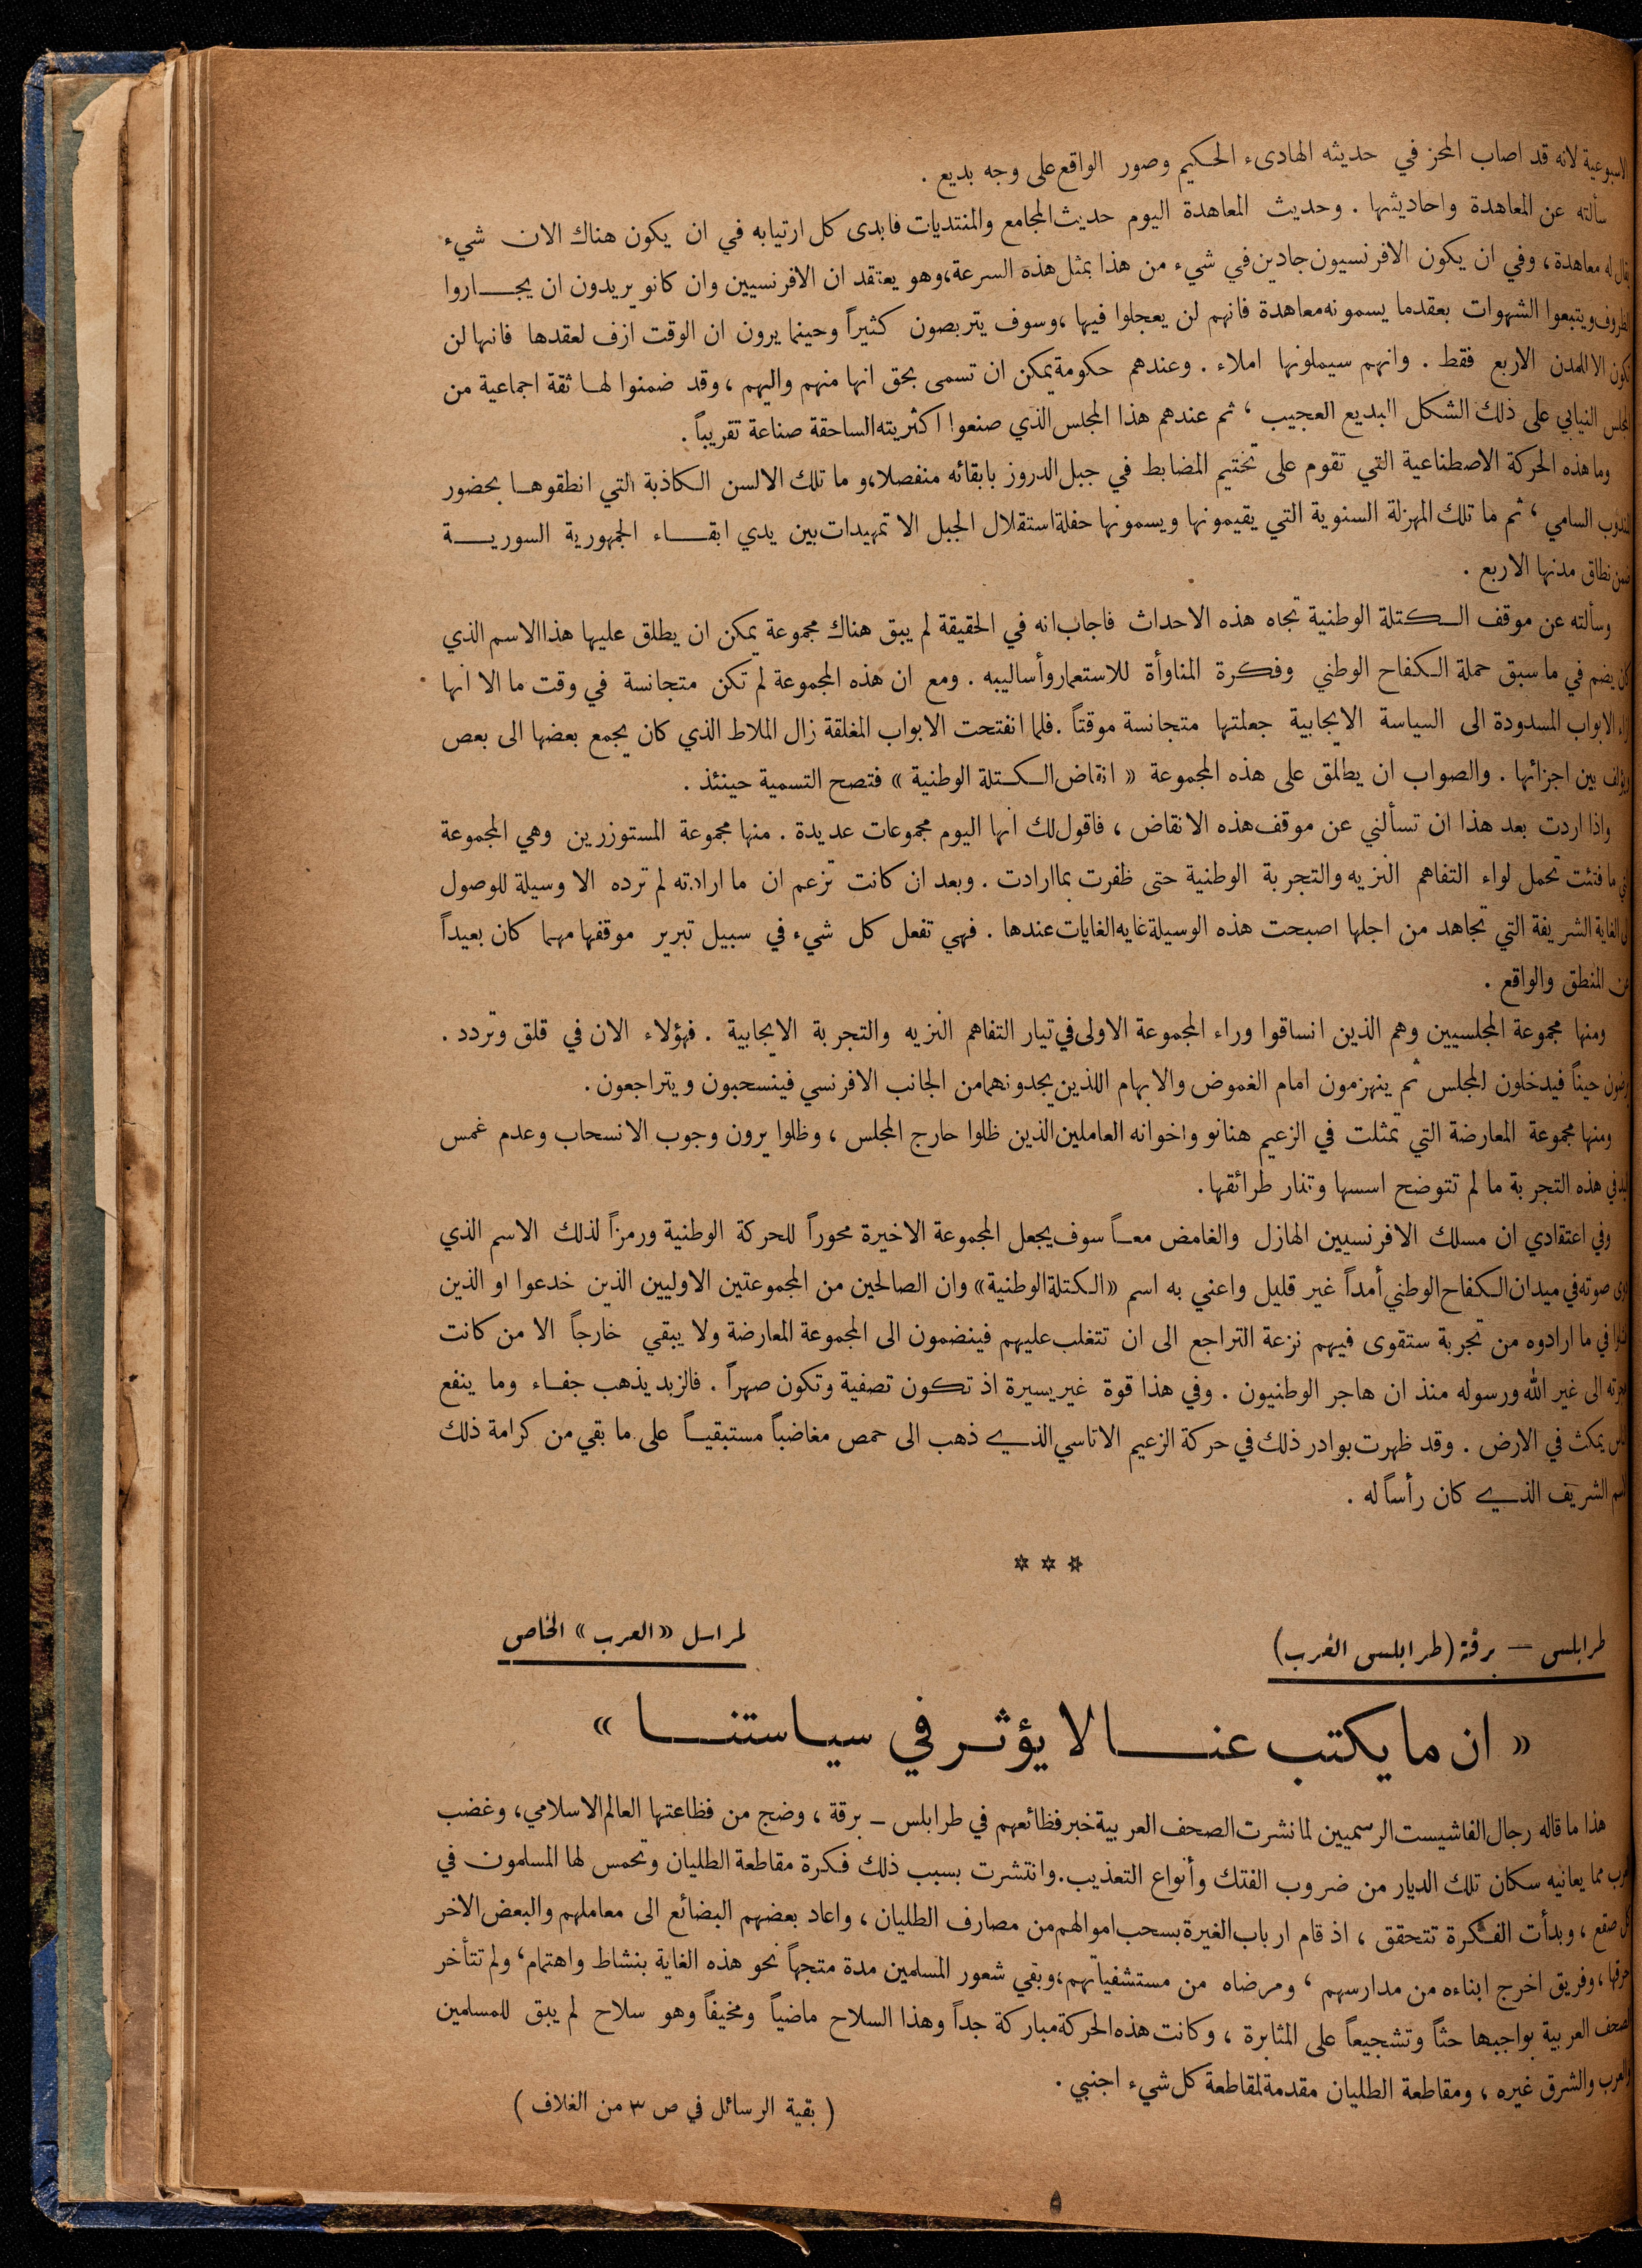 الاسبوعية لانه قد اصاب المحز في حديثه الهادىء الحكيم وصور الواقع على وجه بديع .
سألته عن المعاهدة واحاديثها . وحديث المعاهدة اليوم حديث المجامع والمنتديات فابدى كل ارتيابه في ان يكون هناك الان شيء
يقال له معاهدة ، وفي ان يكون الافرنسيون جادين في شيء من هذا بمثل هذه السرعة ، وهو يعتقد ان الافرنسيين وان كانو يريدون ان يجاروا
الظروف ويتبعوا الشهوات بعقد ما يسمونه معاهدة فانهم لن يعجلوا فيها ، وسوف يتربصون كثيراً وحينما يرون ان الوقت ازف لعقدها فانها لن
تكون الا للمدن الاربع فقط . وانهم سيملونها املاء . وعندهم حكومة يمكن ان تسمى بحق انها منهم واليهم ، وقد ضمنوا لها ثقة اجماعية من
المجلس النيابي على ذلك الشكل البديع العجيب ، ثم عندهم هذا المجلس الذي صنعوا اكثريته الساحقة صناعة تقريباً .
وما هذه الحركة الاصطناعية التي تقوم على تختيم المضابط في جبل الدروز بابقائه منفصلا ، و ما تلك الالسن الكاذبة التي انطقوها بحضور
المندوب السامي ، ثم ما تلك المهزلة السنوية التي يقيمونها ويسمونها حفلة استقلال الجبل الا تمهيدات بين يدي ابقاء الجمهورية السورية
ضمن نطاق مدنها الاربع .
وسألته عن موقف الكتلة الوطنية تجاه هذه الاحداث فاجاب انه في الحقيقة لم يبق هناك مجموعة يمكن ان يطلق عليها هذا الاسم الذي
كان يضم في ما سبق حملة الكفاح الوطني وفكرة المناوأة للاستعمار وأساليبه . ومع ان هذه المجموعة لم تكن متجانسة في وقت ما الا انها
ازاء الابواب المسدودة الى السياسة الايجابية جعلتها متجانسة موقتاً . فلما انفتحت الابواب المغلقة زال الملاط الذي كان يجمع بعضها الى بعض
ويؤلف بين اجزائها . والصواب ان يطلق على هذه المجموعة « انقاض الكتلة الوطنية » فتصح التسمية حينئذ .
واذا اردت بعد هذا ان تسألني عن موقف هذه الانقاض ، فاقول لك انها اليوم مجموعات عديدة . منها مجموعة المستوزرين وهي المجموعة
التي ما فتئت تحمل لواء التفاهم النزيه والتجربة الوطنية حتى ظفرت بما ارادت . وبعد ان كانت تزعم ان ما ارادته لم ترده الا وسيلة للوصول
الى الغاية الشريفة التي تجاهد من اجلها اصبحت هذه الوسيلة غايه الغايات عندها . فهي تفعل كل شيء في سبيل تبرير موقفها مهما كان بعيداً
عن المنطق والواقع .
ومنها مجموعة المجلسيين وهم الذين انساقوا وراء المجموعة الاولى في تيار التفاهم النزيه والتجربة الايجابية . فهؤلاء الان في قلق وتردد .
يرضون حيناً فيدخلون المجلس ثم ينهزمون امام الغموض والابهام اللذين يجدونهما من الجانب الافرنسي فينسحبون ويتراجعون .
ومنها مجموعة المعارضة التي تمثلت في الزعيم هنانو واخوانه العاملين الذين ظلوا حارج المجلس ، وظلوا يرون وجوب الانسحاب وعدم غمس
اليد في هذه التجربة ما لم تتوضح اسسها وتنار طرائقها .
وفي اعتقادي ان مسلك الافرنسيين الهازل والغامض معاً سوف يجعل المجموعة الاخيرة محوراً للحركة الوطنية ورمزاً لذلك الاسم الذي
دوى صوته في ميدان الكفاح الوطني أمداً غير قليل واعني به اسم «الكتلة الوطنية» وان الصالحين من المجموعتين الاوليين الذين خدعوا او الذين
في ما ارادوه من تجربة ستقوى فيهم نزعة التراجع الى ان تتغلب عليهم فينضمون الى المجموعة المعارضة ولا يبقي خارجاً الا من كانت
هجرته الى غير الله ورسوله منذ ان هاجر الوطنيون . وفي هذا قوة غير يسيرة اذ تكون تصفية وتكون صهراً . فالزبد يذهب جفاء وما ينفع
الناس يمكث في الارض . وقد ظهرت بوادر ذلك في حركة الزعيم الاتاسي الذي ذهب الى حمص مغاضباً مستبقياً على ما بقي من كرامة ذلك
الاسم الشريف الذي كان رأساً له .
* * *
طرابلس — برقة (طرابلس الغرب)
لمراسل «العرب» الخاص
« ان ما يكتب عنا لا يؤثر في سياستنا »
هذا ما قاله رجال الفاشيست الرسميين لما نشرت الصحف العربية خبر فظائعهم في طرابلس – برقة ، وضج من فظاعتها العالم الاسلامي ، وغضب
العرب مما يعانيه سكان تلك الديار من ضروب الفتك وأنواع التعذيب . وانتشرت بسبب ذلك فكرة مقاطعة الطليان وتحمس لها المسلمون في
كل صقع ، وبدأت الفكرة تتحقق ، اذ قام ارباب الغيرة بسحب اموالهم من مصارف الطليان ، واعاد بعضهم البضائع الى معاملهم والبعض الاخر
حرقها ، وفريق اخرج ابناءه من مدارسهم ، ومرضاه من مستشفياتهم ، وبقي شعور المسلمين مدة متجهاً نحو هذه الغاية بنشاط واهتمام ، ولم تتأخر
الصحف العربية بواجبها حثاً وتشجيعاً على المثابرة ، وكانت هذه الحركة مباركة جداً وهذا السلاح ماضياً ومخيفاً وهو سلاح لم يبق للمسلمين
والعرب والشرق غيره ، ومقاطعة الطليان مقدمة لمقاطعة كل شيء اجنبي .
( بقية الرسائل في ص ٣ من الغلاف )